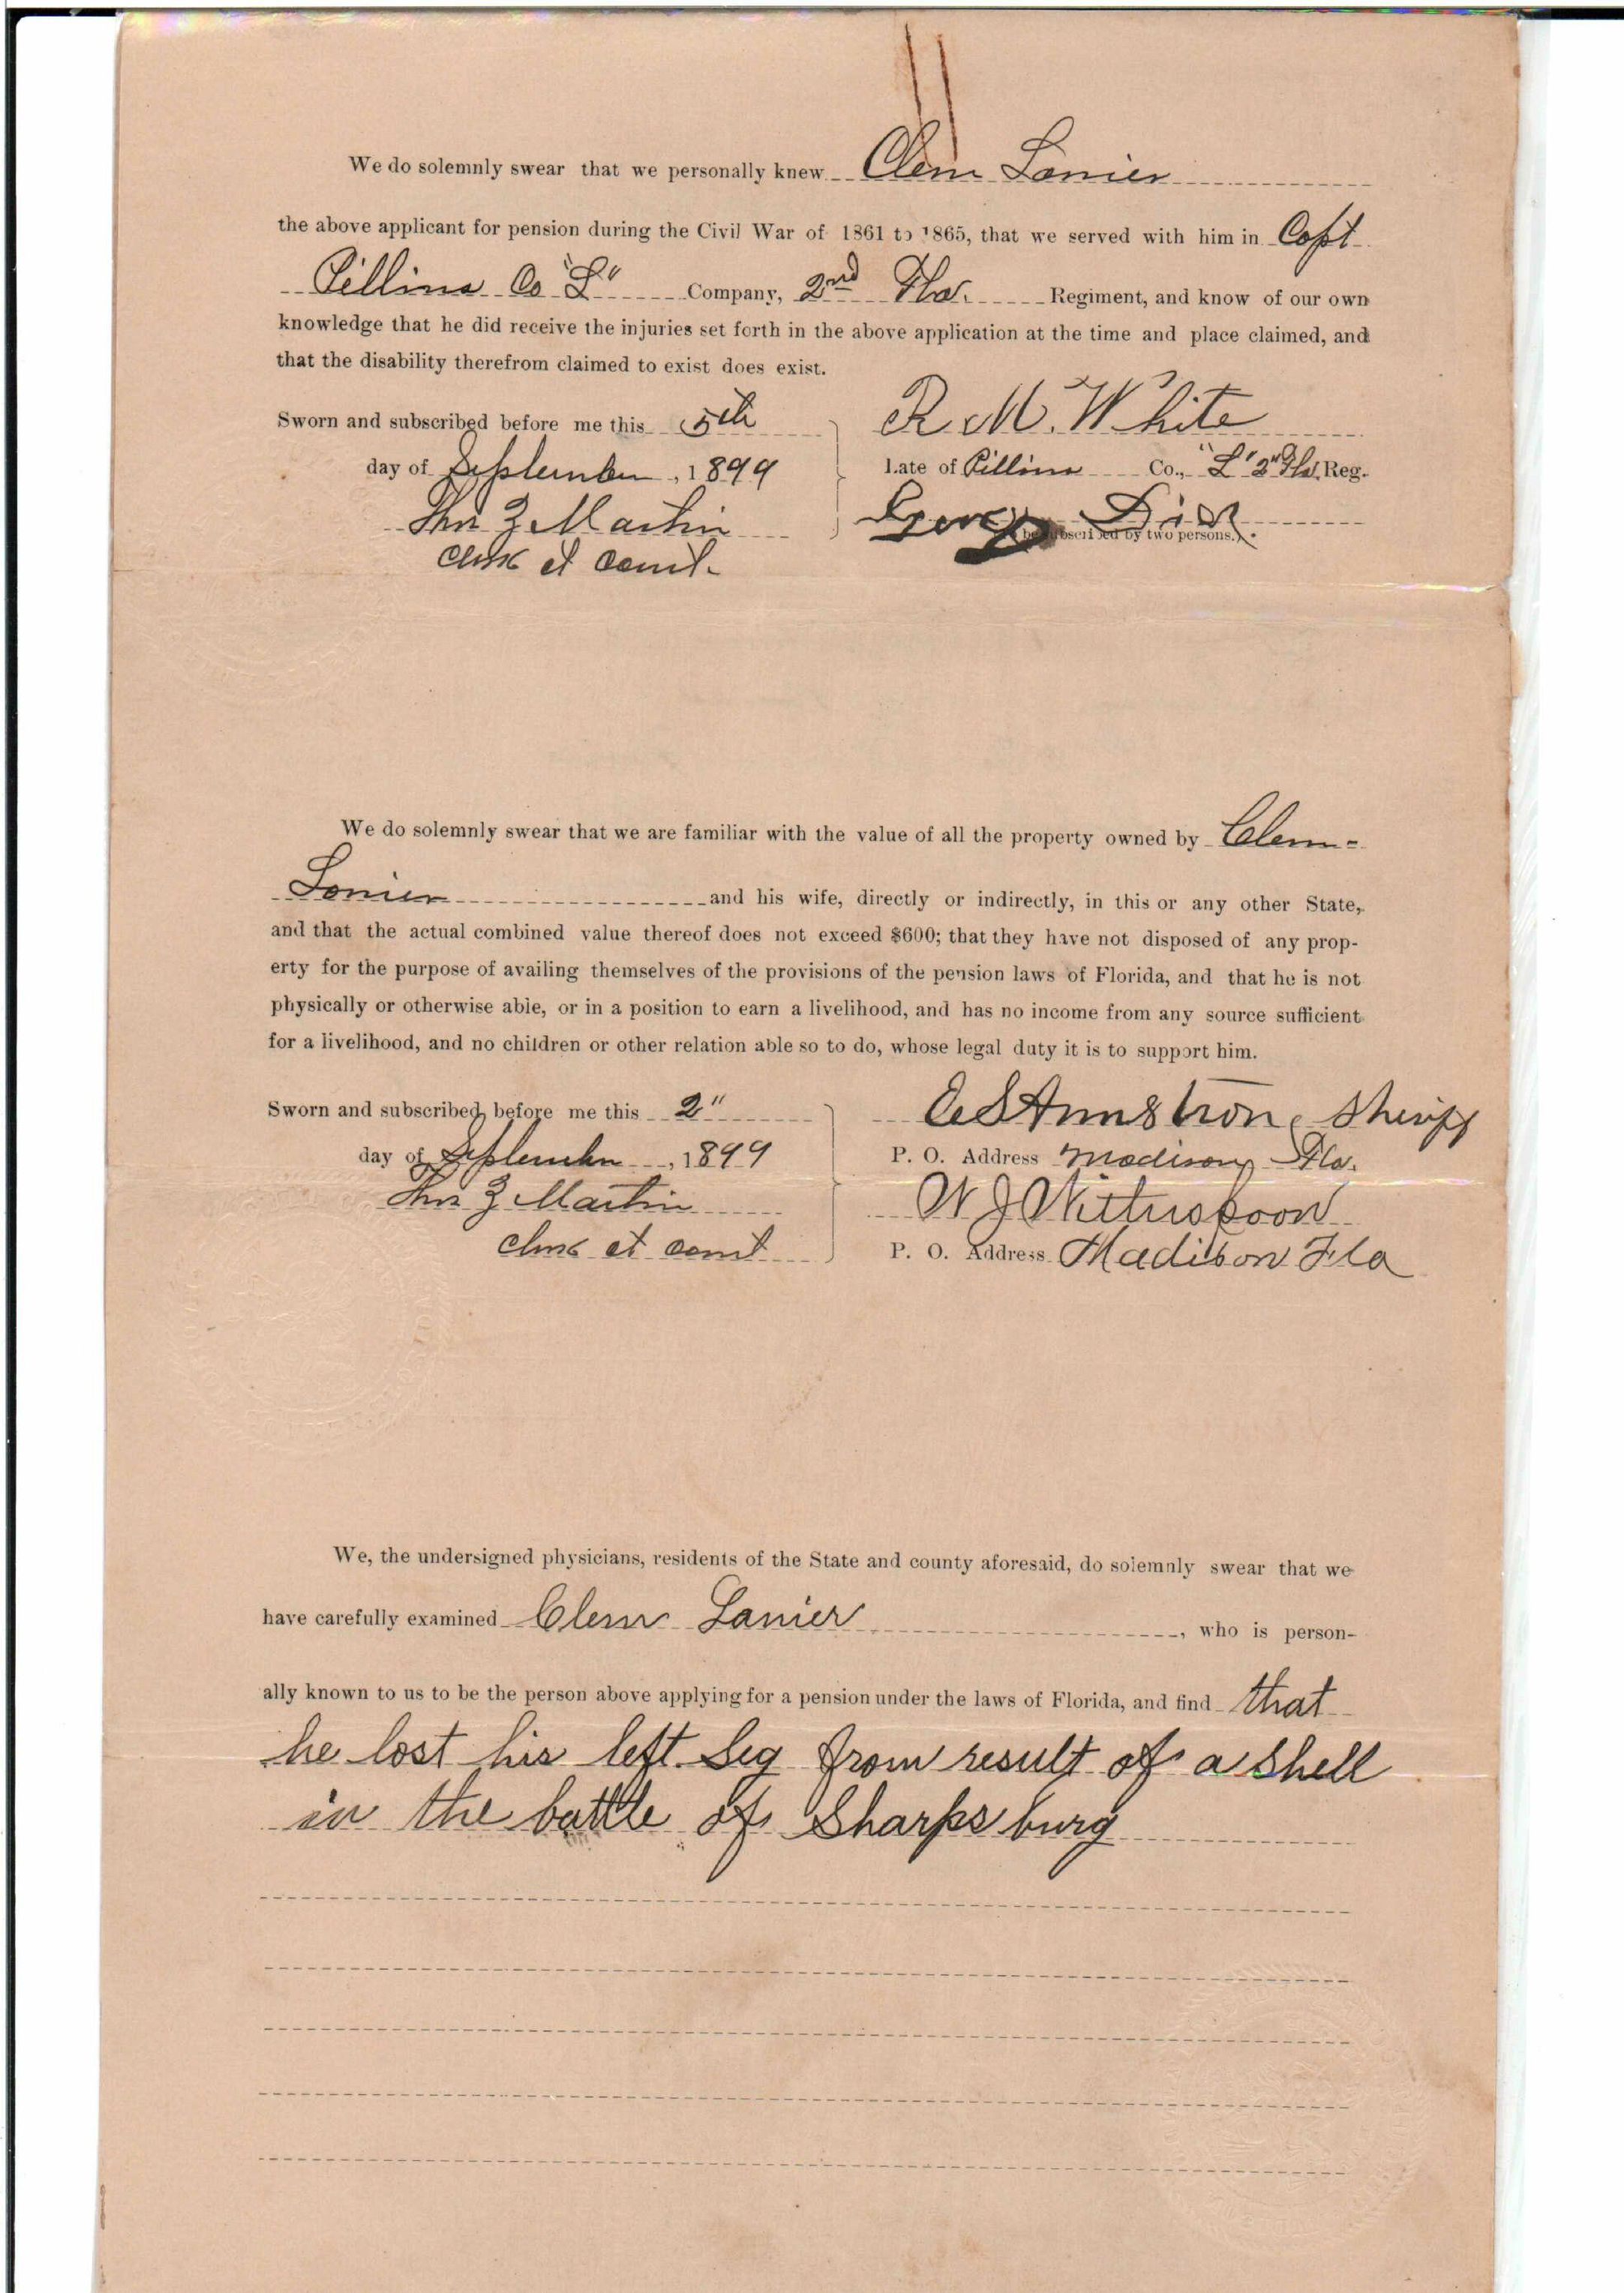 We do solemnly swear that we personally knew Clem Lanier
the above applicant for pension during the Civil War of 1861 to 1865, that we served with him in Capt
Pillins Co "L" Company, 2nd Fla. Regiment, and know of our own
knowledge that he did receive the injuries set forth in the above application at the time and place claimed, and
that the disability therefrom claimed to exist does exist.
Sworn and subscribed before me this 5th
day of September, 1899
Thos Z Martin
Clerk ct court.
R. M. White
Late of Pillins Co., "L" 2" Fla. Reg.
George Dick
be subscribed by two persons.)
We do solemnly swear that we are familiar with the value of all the property owned by Clem
Lanier and his wife, directly or indirectly, in this or any other State,
and that the actual combined value thereof does not exceed $600; that they have not disposed of any prop-
erty for the purpose of availing themselves of the provisions of the pension laws of Florida, and that he is not
physically or otherwise able, or in a position to earn a livelihood, and has no income from any source sufficient
for a livelihood, and no children or other relation able so to do, whose legal duty it is to support him.
Sworn and subscribed before me this 2"
day of September, 1899
Thos Z Martin
Clerk ct court
Armstrong Sheriff
P. O. Address Madison Fla.
W J Witherspoon
P. O. Address Madison Fla
We, the undersigned physicians, residents of the State and county aforesaid, do solemnly swear that we
have carefully examined Clem Lanier, who is person-
ally known to us to be the person above applying for a pension under the laws of Florida, and find that
he lost his left Leg from result of a shell
in the battle of Sharpsburg